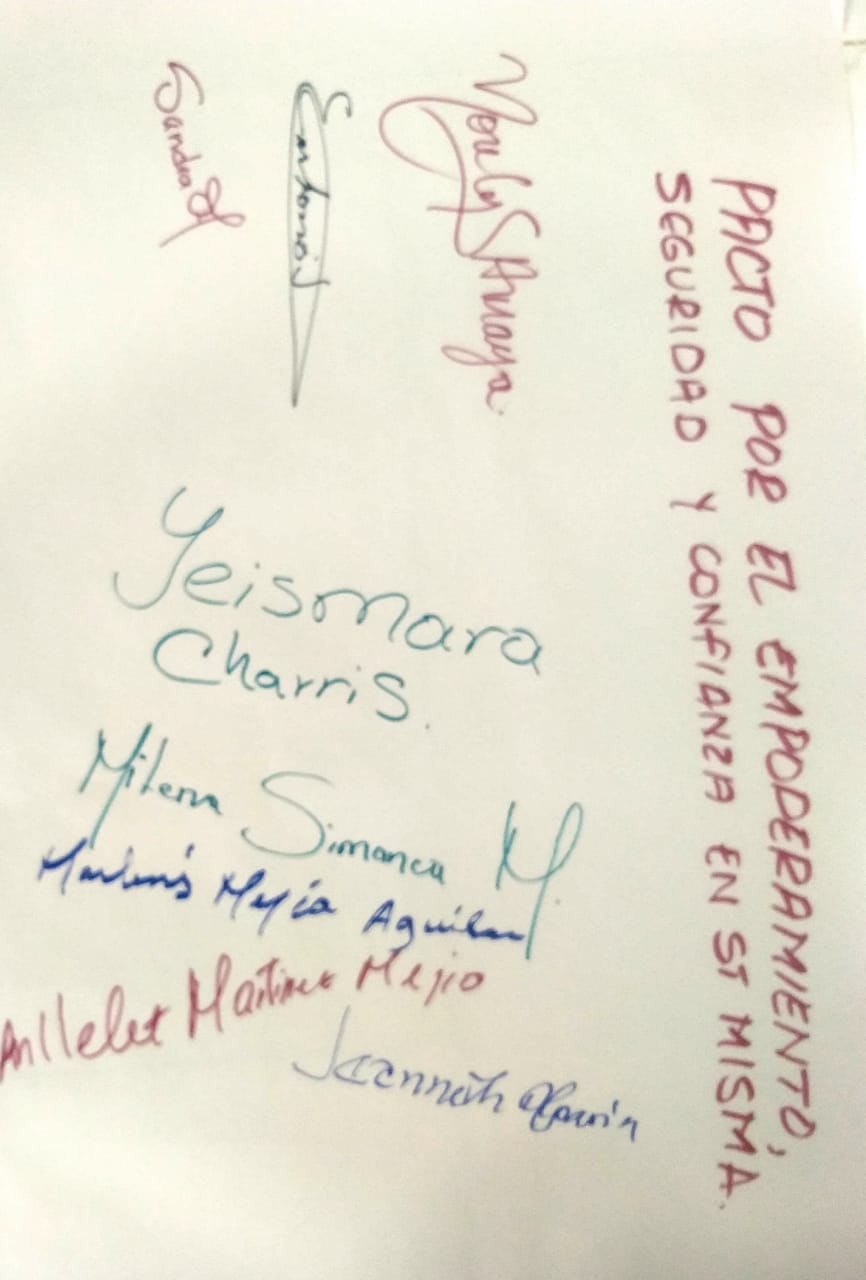 PACTO POR EL EMPODERAMIENTO,
SEGURIDAD Y CONFIANZA EN SI MISMA.
Amaya.
Sandra
Yeismara
Charris.
Milena Simanca M.
Marlenis Mejia Aguilar
Anllelet Martinez Mejia